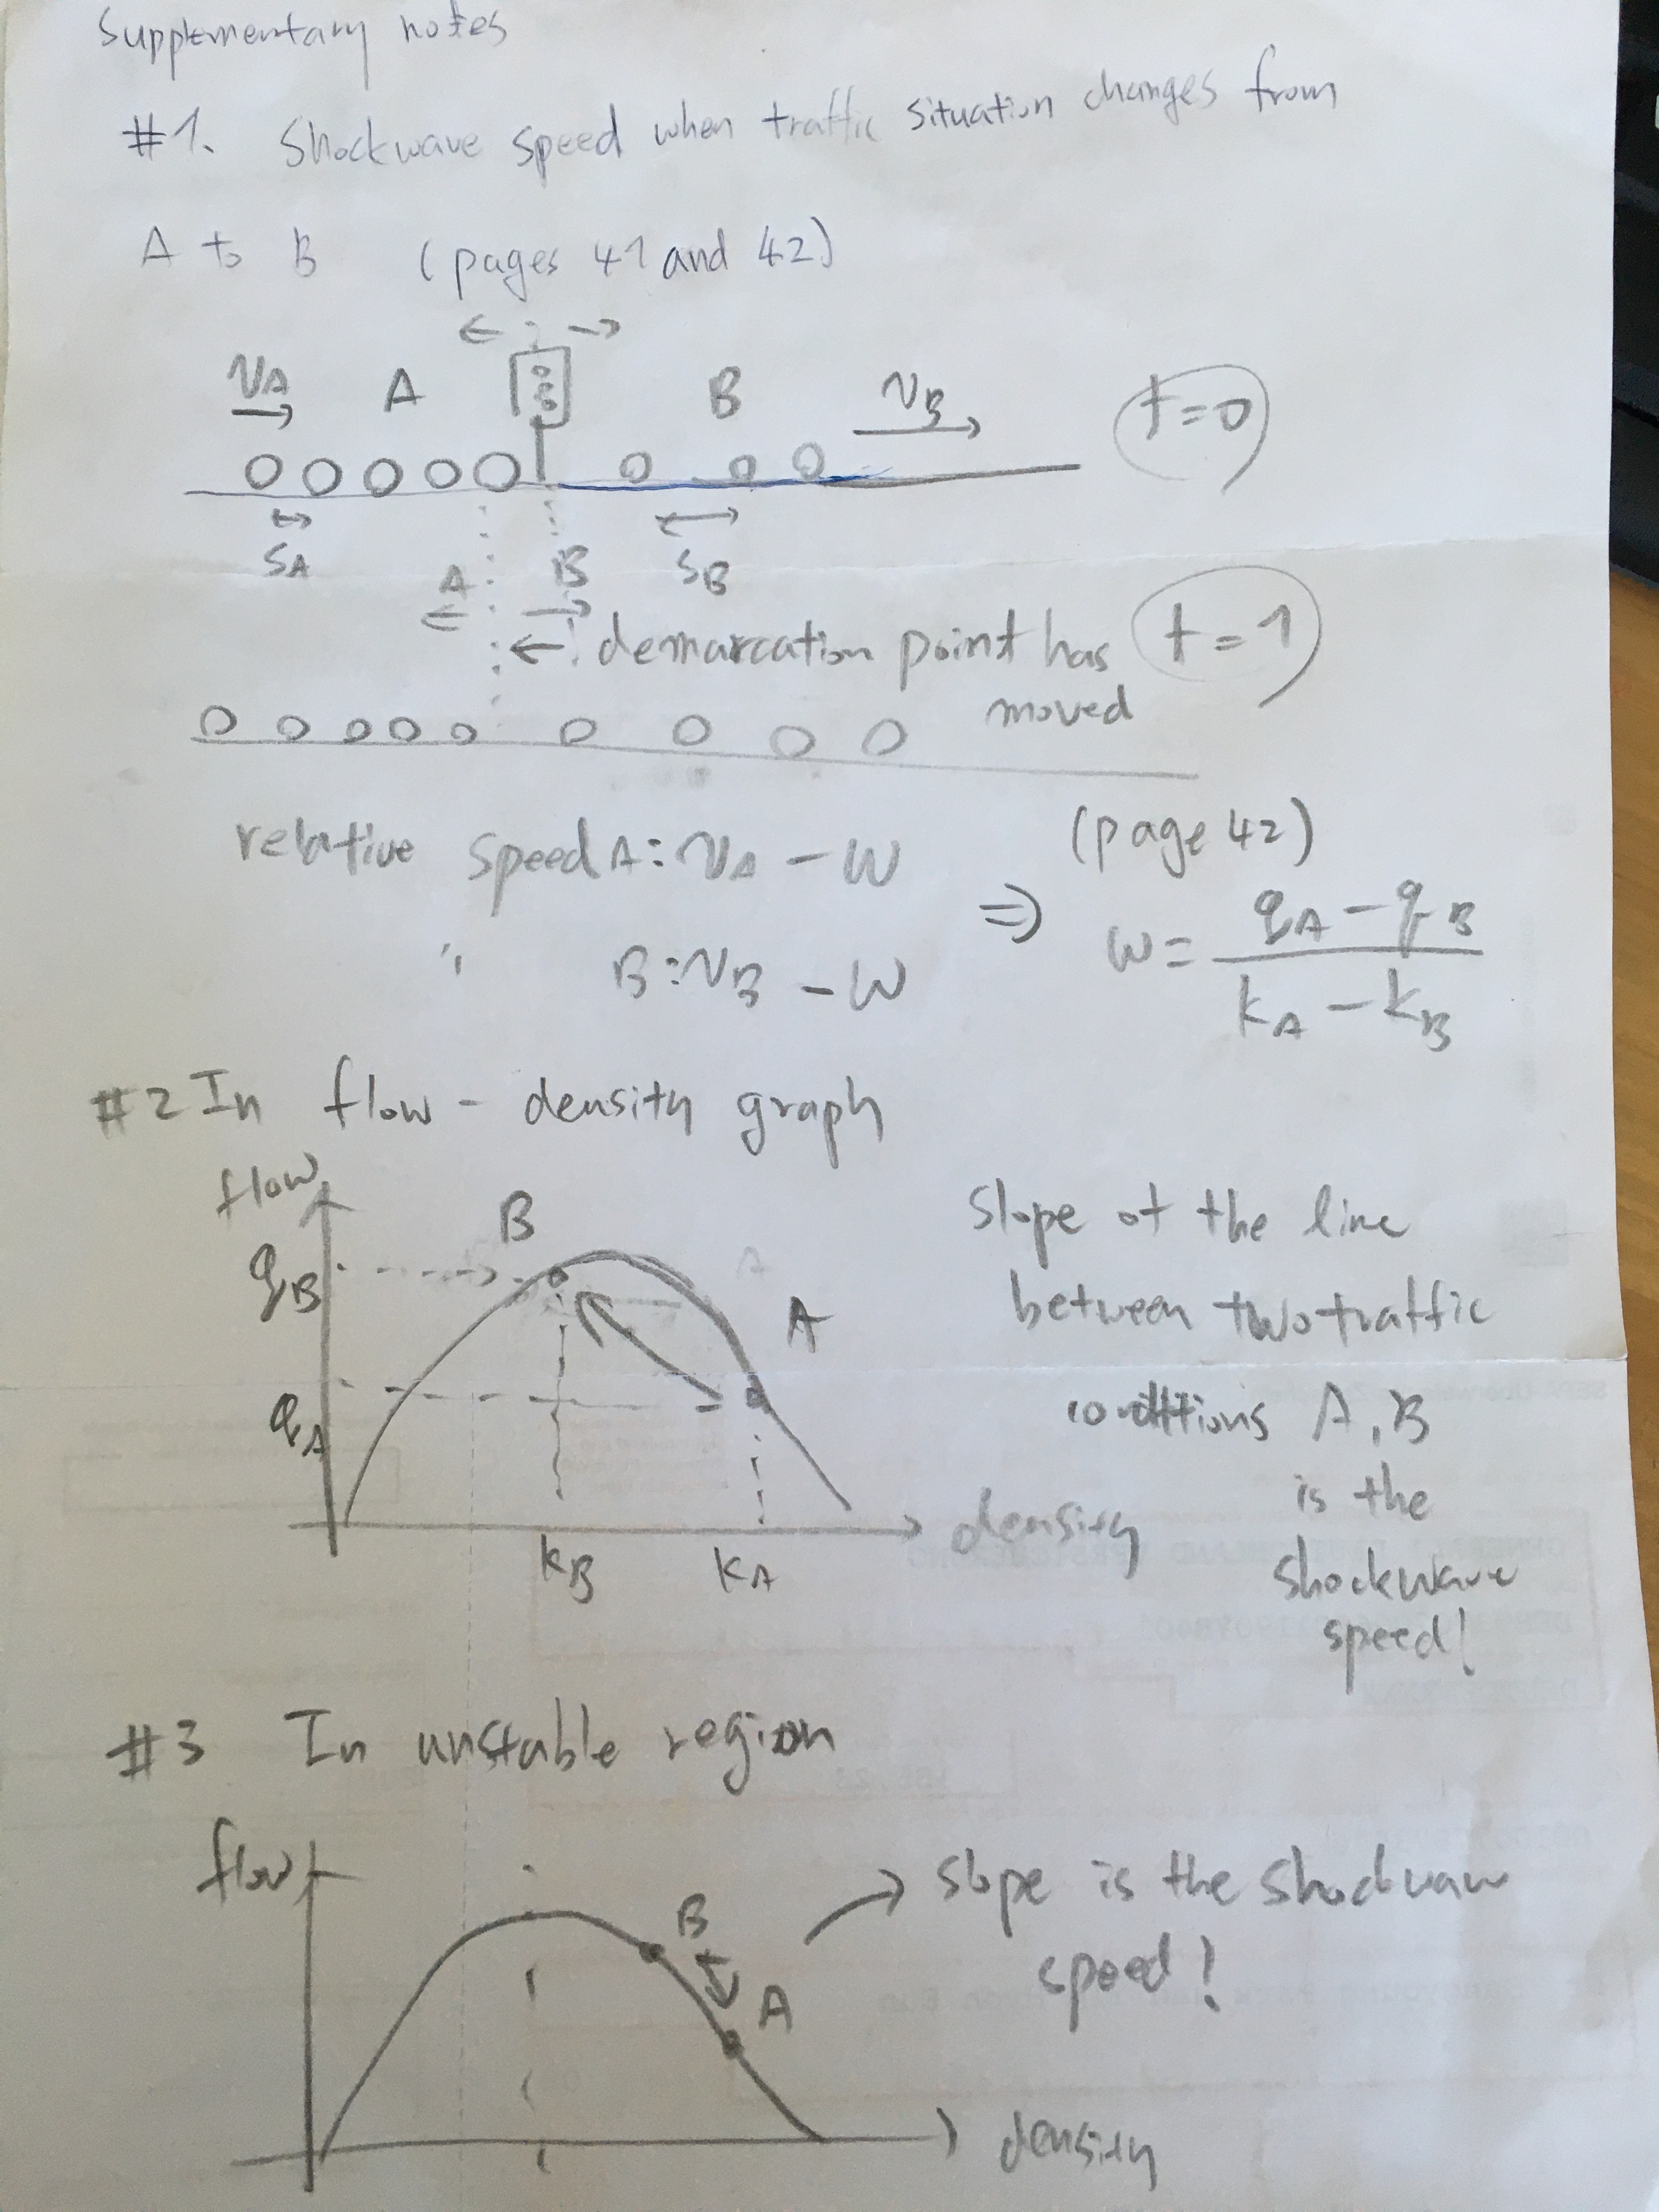 Supplementary notes
#1. Shockwave speed when traffic situation changes from
A to B (pages 41 and 42)
vA A B vB t=0
sA sB
A B
demarcation point has moved t=1
relative speed A: vA - w
" B: vB - w
(page 42)
⇒ w = (qA - qB) / (kA - kB)
#2 In flow - density graph
flow
B
qB
A
A
qA
kB kA
density
Slope of the line
between two traffic
conditions A, B
is the
shockwave
speed!
#3 In unstable region
flow
B
A
density
→ slope is the shockwave
speed!